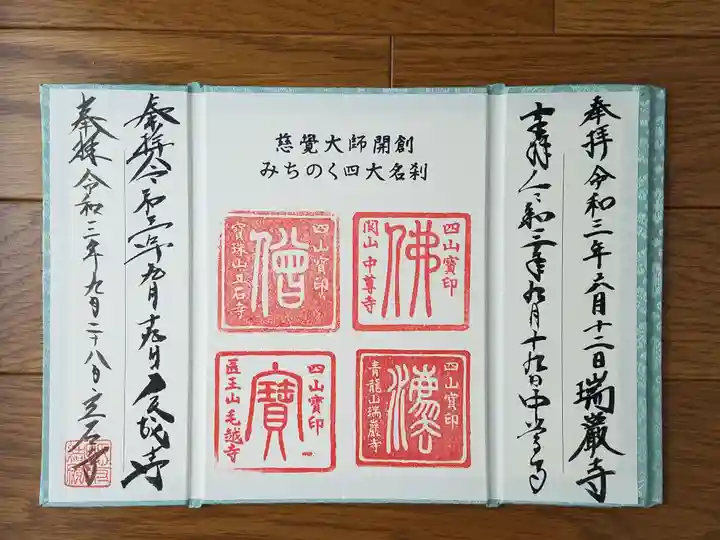 奉拝 令和三年六月十二日 瑞巌寺
奉拝 令和三年九月十九日 中尊寺
慈覺大師開創
みちのく四大名刹
四山寶印
佛
関山 中尊寺
四山寶印
僧
寶珠山立石寺
四山寶印
青龍山瑞巖寺
四山寶印
寶
医王山 毛越寺
奉拝 令和三年九月十九日 毛越寺
奉拝 令和三年九月二十八日 立石寺